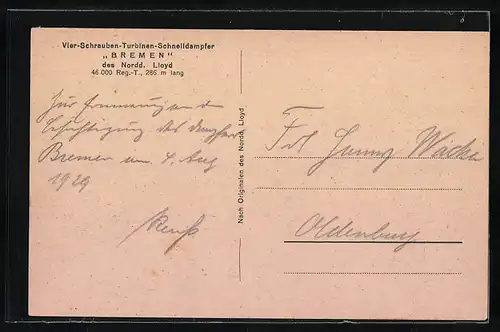 Vier-Schrauben-Turbinen-Schnelldampfer
„BREMEN"
des Nordd. Lloyd
46.000 Reg.-T., 286 m lang
Zur Erinnerung an d
Besichtigung des Dampfer
Bremen am 4. Aug
1929
Nach Originalen des Nordd. Lloyd
Frl
Oldenburg